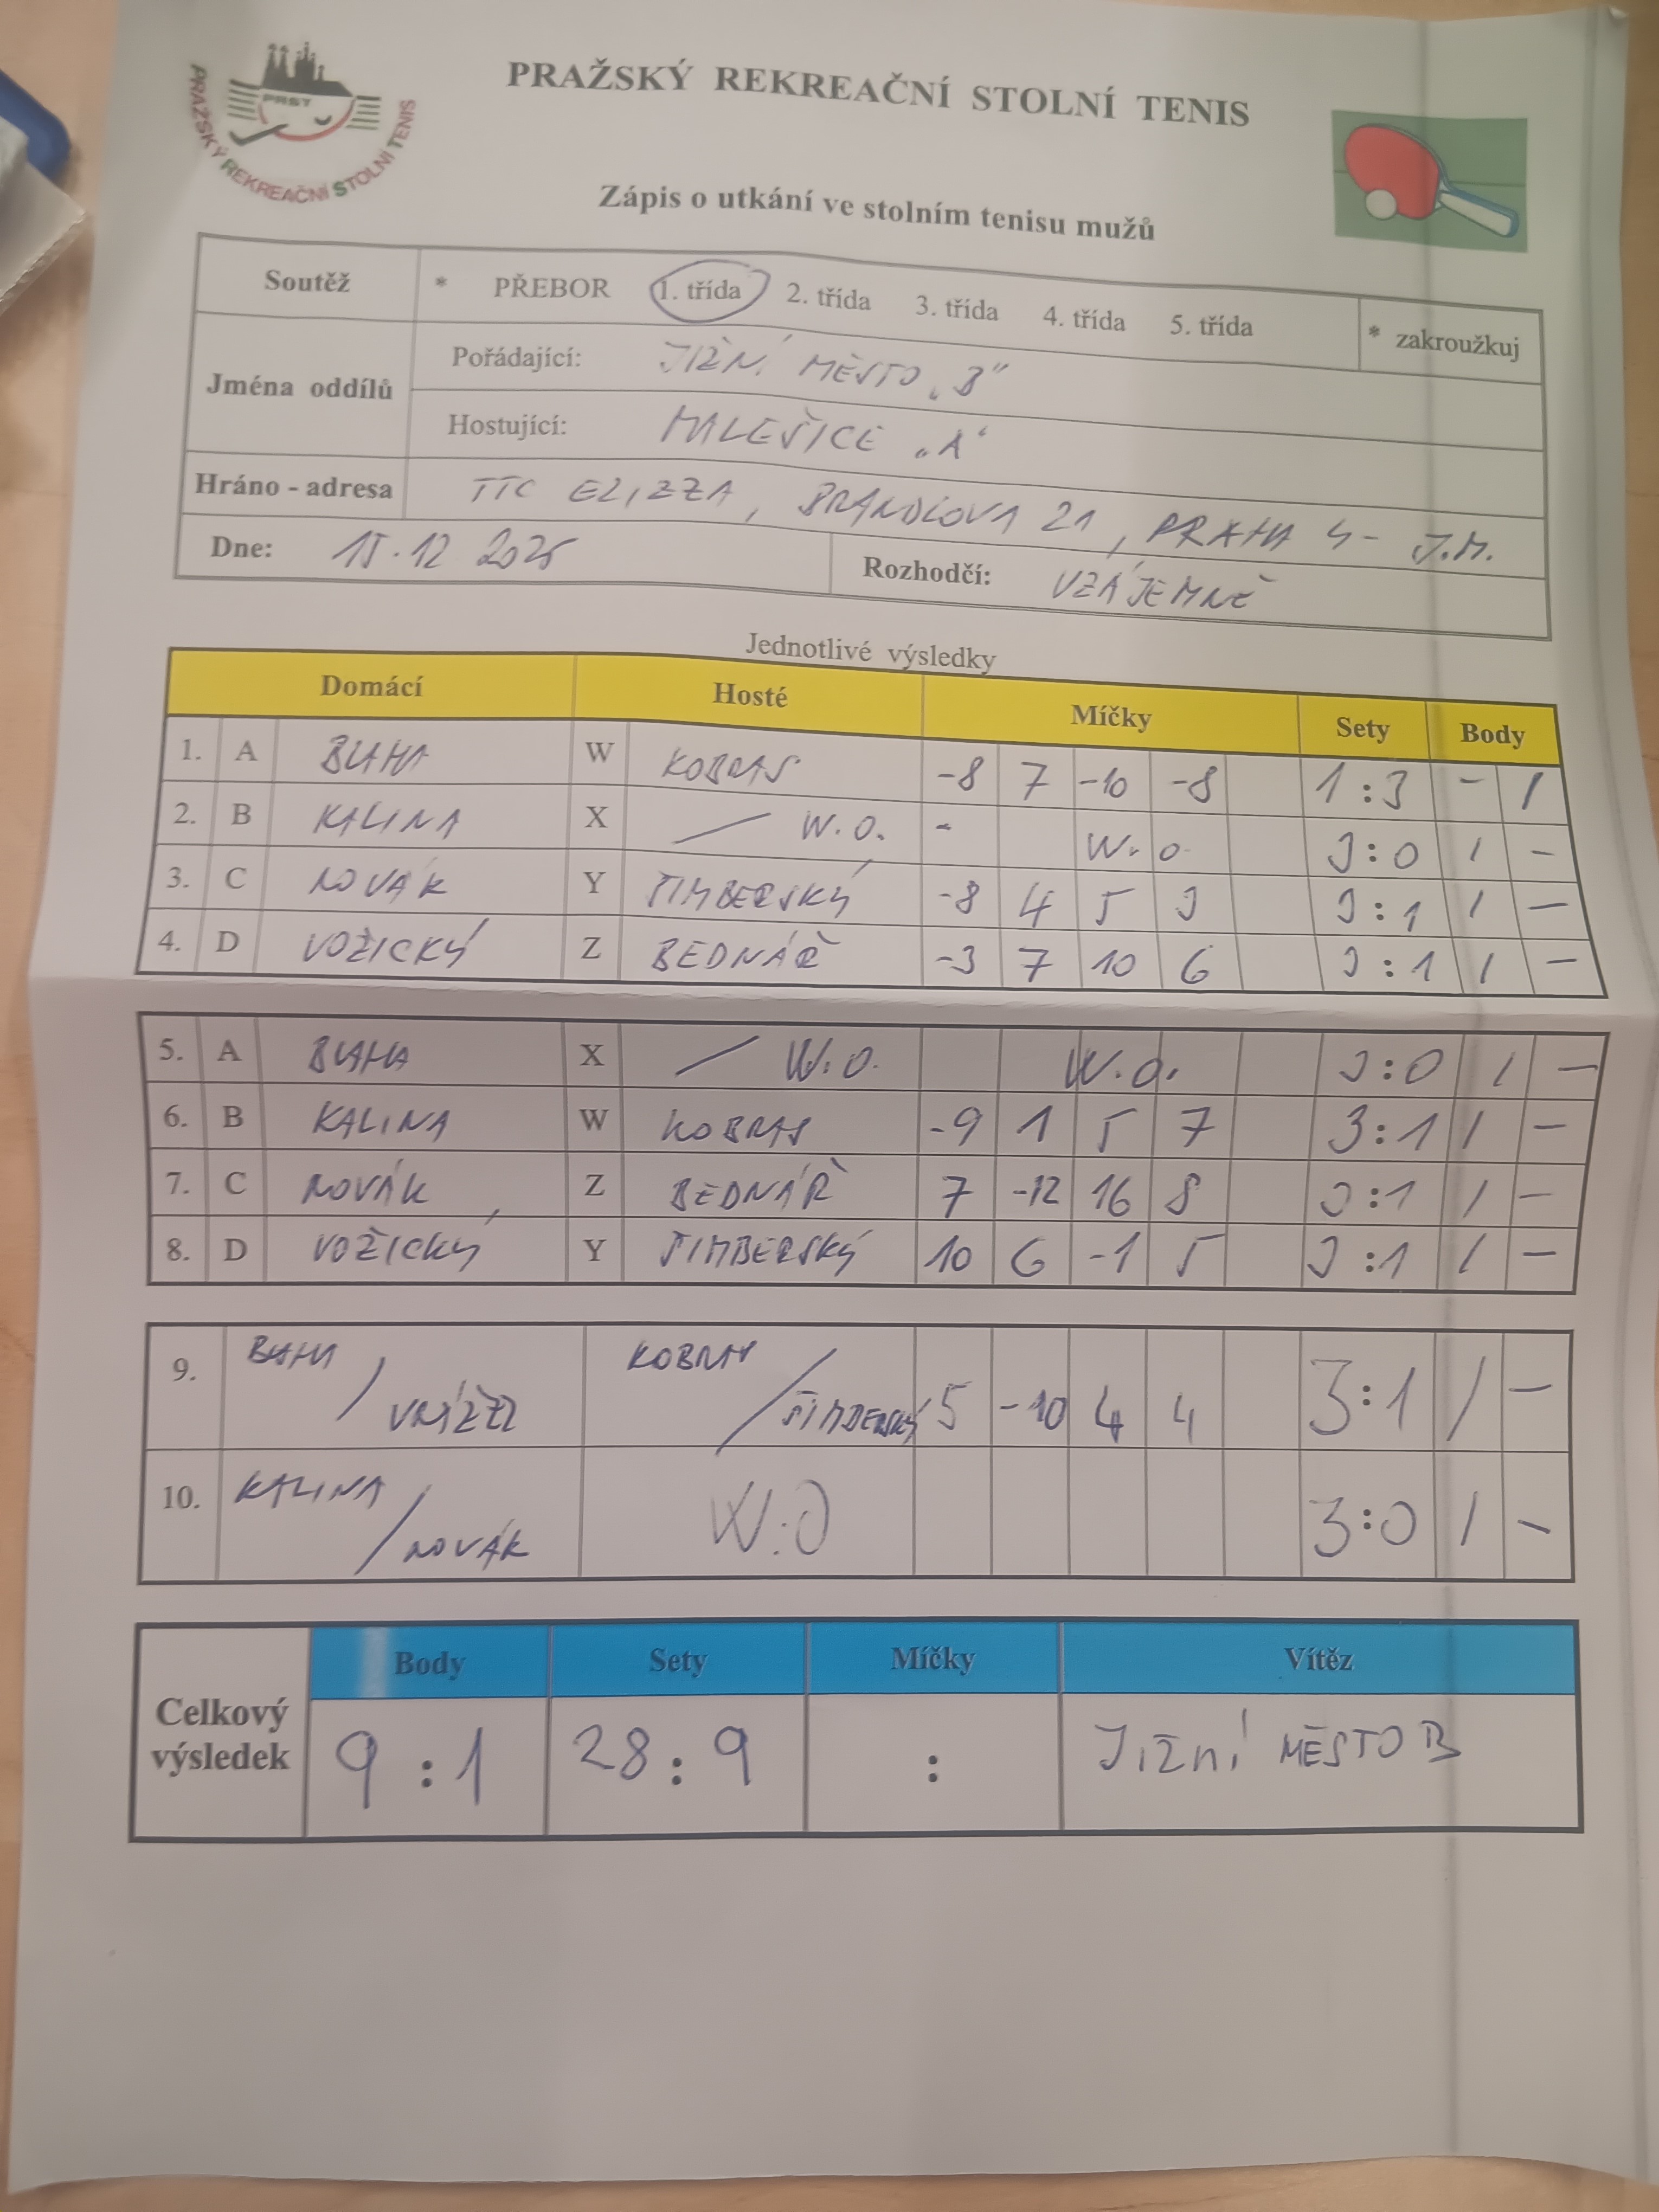 PRAŽSKÝ REKREAČNÍ STOLNÍ TENIS
PRST
PRAŽSKÝ REKREAČNÍ STOLNÍ TENIS
Zápis o utkání ve stolním tenisu mužů
Soutěž * PŘEBOR 1. třída 2. třída 3. třída 4. třída 5. třída * zakroužkuj
Jména oddílů
Pořádající: JIŽNÍ MĚSTO „B"
Hostující: MALEŠICE „A"
Hráno - adresa TTC ELIZZA, BRANDLOVA 21, PRAHA 4 - J.M.
Dne: 15.12 2025 Rozhodčí: VZÁJEMNĚ
Jednotlivé výsledky
Domácí Hosté Míčky Sety Body
1. A BLAHA W KOBRAS -8 7 -10 -8 1:3 - 1
2. B KALINA X / W.O. - W.O. 3:0 1 -
3. C NOVÁK Y ŠIMBERSKÝ -8 4 5 3 3:1 1 -
4. D VOŽICKÝ Z BEDNÁŘ -3 7 10 6 3:1 1 -
5. A BLAHA X / W.O. W.O. 3:0 1 -
6. B KALINA W KOBRAS -9 1 5 7 3:1 1 -
7. C NOVÁK Z BEDNÁŘ 7 -12 16 8 3:1 1 -
8. D VOŽICKÝ Y ŠIMBERSKÝ 10 6 -1 5 3:1 1 -
9. BLAHA / KOBRAS / ŠIMBERSKÝ 5 -10 4 4 3:1 1 -
10. KALINA / NOVÁK W:O 3:0 1 -
Celkový výsledek
Body Sety Míčky Vítěz
9 : 1 28 : 9 : JIŽNÍ MĚSTO B